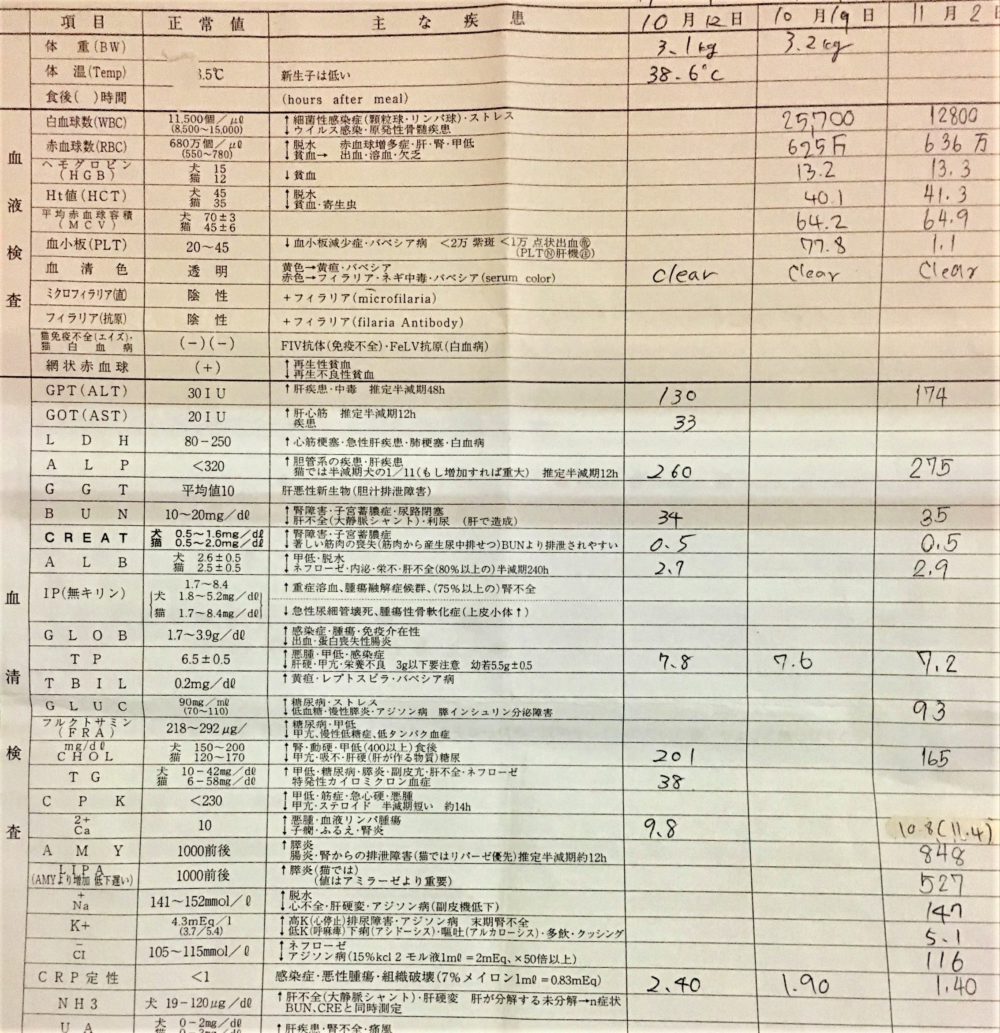 項目 正常値 主な疾患 10月12日 10月19日 11月2日
体 重(BW) 3.1kg 3.2kg
体 温(Temp) .5℃ 新生子は低い 38.6℃
食後( )時間 (hours after meal)
血液検査
白血球数(WBC) 11,500個/μl (8,500~15,000) ↑細菌性感染症(顆粒球・リンパ球)・ストレス ↓ウイルス感染・原発性骨髄疾患 25,700 12800
赤血球数(RBC) 680万個/μl (550~780) ↑脱水 赤血球増多症・肝・腎・甲低 ↓貧血→ 出血・溶血・欠乏 625万 636万
ヘモグロビン(HGB) 犬 15 猫 12 ↓貧血 13.2 13.3
Ht値(HCT) 犬 45 猫 35 ↑脱水 ↓貧血・寄生虫 40.1 41.3
平均赤血球容積(MCV) 犬 70±3 猫 45±6 64.2 64.9
血小板(PLT) 20~45 ↓血小板減少症・バベシア病 <2万 紫斑 <1万 点状出血 77.8 1.1
血清色 透明 黄色→黄疸・バベシア 赤色→フィラリア・ネギ中毒・バベシア(serum color) clear clear clear
ミクロフィラリア(直) 陰性 +フィラリア(microfilaria)
フィラリア(抗原) 陰性 +フィラリア(filaria Antibody)
猫免疫不全(エイズ)・猫白血病 (-)(-) FIV抗体(免疫不全)・FeLV抗原(白血病)
網状赤血球 (+) ↑再生性貧血 ↓再生不良性貧血
血清検査
GPT(ALT) 30IU ↑肝疾患・中毒 推定半減期48h 130 174
GOT(AST) 20IU ↑肝心筋疾患 推定半減期12h 33
LDH 80-250 ↑心筋梗塞・急性肝疾患・肺梗塞・白血病
ALP <320 ↑胆管系の疾患・肝疾患 猫では半減期犬の1/11(もし増加すれば重大) 推定半減期12h 260 275
GGT 平均値10 肝悪性新生物(胆汁排泄障害)
BUN 10~20mg/dl ↑腎障害・子宮蓄膿症・尿路閉塞 ↓肝不全(大静脈シャント)・利尿 (肝で造成) 34 35
CREAT 犬 0.5~1.6mg/dl 猫 0.5~2.0mg/dl ↑腎障害・子宮蓄膿症 ↓著しい筋肉の喪失(筋肉から産生尿中排せつ)BUNより排泄されやすい 0.5 0.5
ALB 犬 2.6±0.5 猫 2.5±0.5 ↑甲低・脱水 ↓ネフローゼ・内泌・栄不・肝不全(80%以上の)半減期240h 2.7 2.9
IP(無キリン) 1.7~8.4 犬 1.8~5.2mg/dl 猫 1.7~8.4mg/dl ↑重症溶血、腫瘍融解症候群、(75%以上の)腎不全 ↓急性尿細管壊死、腫瘍性骨軟化症(上皮小体↑)
GLOB 1.7~3.9g/dl ↑感染症・腫瘍・免疫介在性 ↓出血・蛋白喪失性腸炎
TP 6.5±0.5 ↑悪腫・甲低・感染症 ↓肝硬・甲亢・栄養不良 3g以下要注意 幼若5.5g±0.5 7.8 7.6 7.2
TBIL 0.2mg/dl ↑黄疸・レプトスピラ・バベシア病
GLUC 90mg/ml (70~110) ↑糖尿病・ストレス ↓低血糖・慢性膵炎・アジソン病 膵インシュリン分泌障害 93
フルクトサミン(FRA) 218~292μg/ ↑糖尿病・甲低 ↓甲亢、慢性低糖症、低タンパク血症
mg/dl CHOL 犬 150~200 猫 120~170 ↑腎・動硬・甲低(400以上)食後 ↓甲亢・吸不・肝硬(肝が作る物質)糖尿 201 165
TG 犬 10-42mg/dl 猫 6-58mg/dl ↑甲低・糖尿病・膵炎・副皮亢・肝不全・ネフローゼ 特発性カイロミクロン血症 38
CPK <230 ↑甲低・筋症・急心硬・悪腫 ↓甲亢・ステロイド 半減期短い 約14h
2+ Ca 10 ↑悪腫・血液リンパ腫瘍 ↓子癇・ふるえ・腎炎 9.8 10.8(11.4)
AMY 1000前後 ↑膵炎 腸炎・腎からの排泄障害(猫ではリパーゼ優先)推定半減期約12h 848
LIPA (AMYより増加 低下遅い) 1000前後 ↑膵炎(猫では) (値はアミラーゼより重要) 527
+ Na 141~152mmol/l ↑脱水 ↓心不全・肝硬変・アジソン病(副皮機低下) 147
K+ 4.3mEq/l (3.7/5.4) ↑高K(心停止)排尿障害・アジソン病 末期腎不全 ↓低K(呼麻痺)下痢(アシドーシス)・嘔吐(アルカローシス)・多飲・クッシング 5.1
- Cl 105~115mmol/l ↑ネフローゼ ↓アジソン病(15%kcl 2モル液1ml=2mEq、×50倍以上) 116
CRP定性 <1 感染症・悪性腫瘍・組織破壊(7%メイロン1ml=0.83mEq) 2.40 1.90 1.40
NH3 犬 19-120μg/dl ↑肝不全(大静脈シャント)・肝硬変 肝が分解する未分解→n症状 BUN、CREと同時測定
UA 犬 0-2mg/dl ↑肝疾患・腎不全・痛風